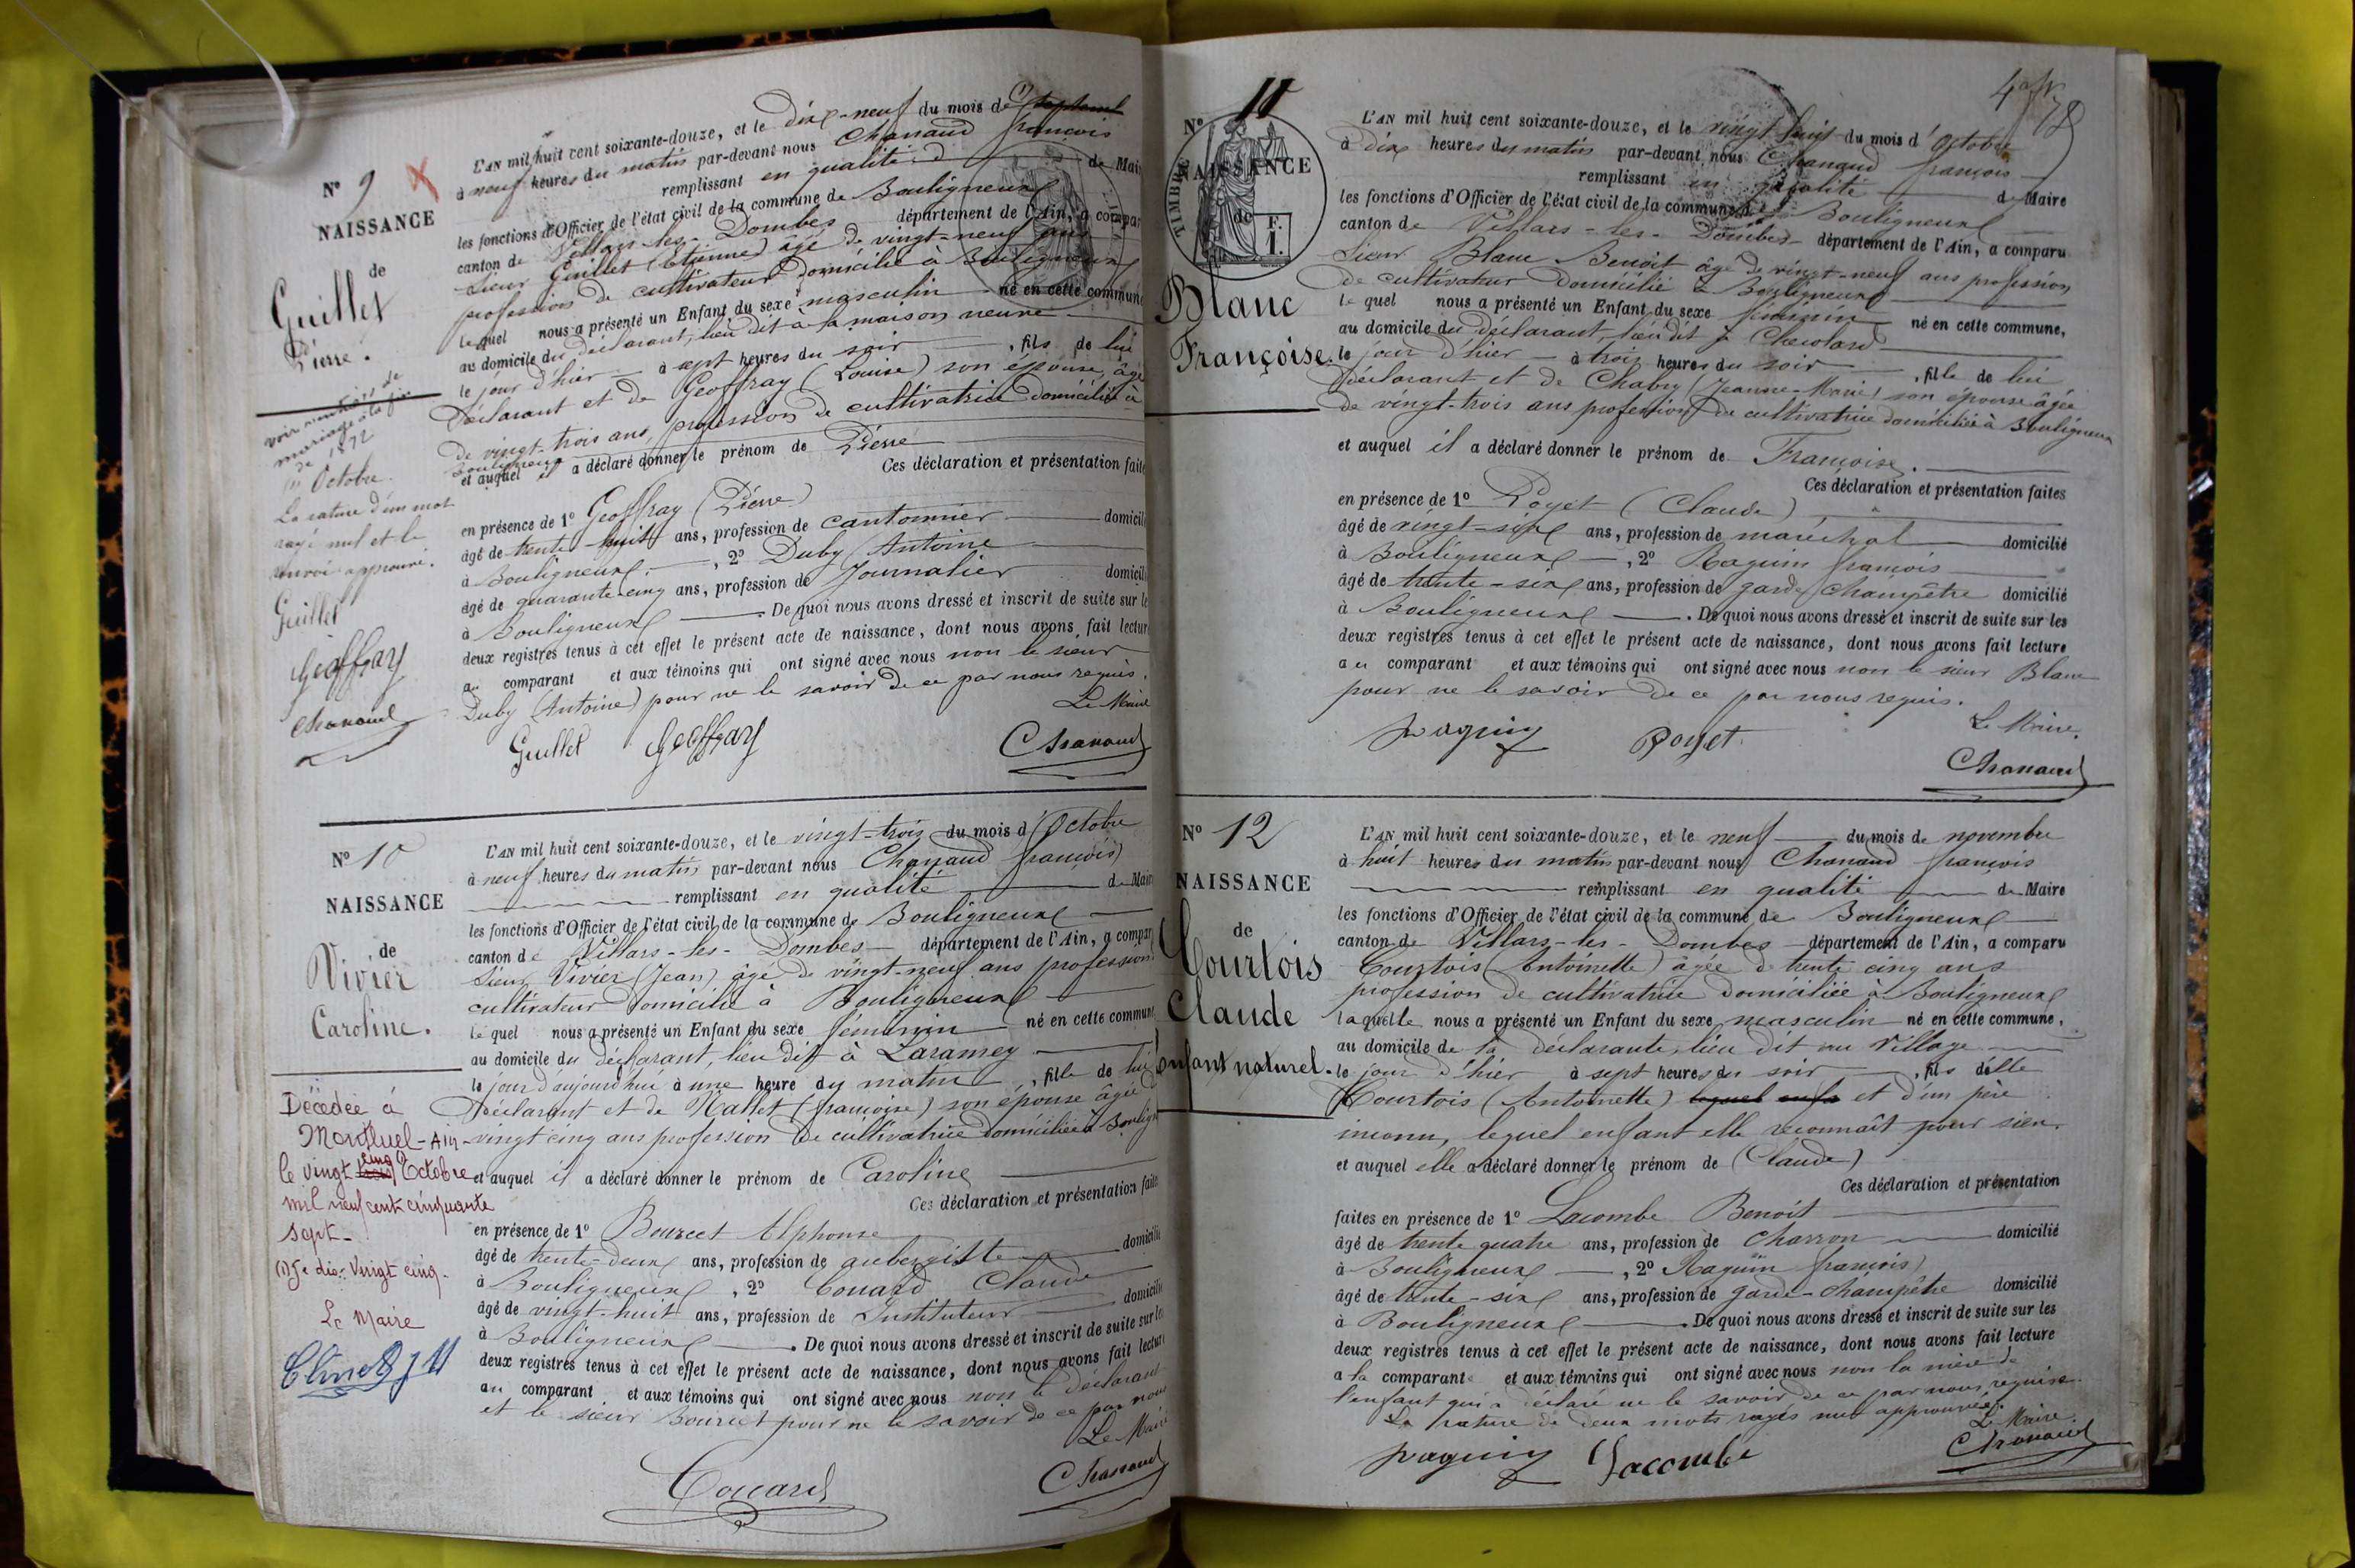 N° 9
NAISSANCE
de
Guillet
Pierre.
voir mention de
mariage à la fin
de 1872
(1) Octobre.
La rature d'un mot
rayé nul et le
renvoi approuvé.
Guillet
Geoffray
Chanaud
L'AN mil huit cent soixante-douze, et le dix-neuf du mois de (1) septembre
à neuf heures du matin par-devant nous Chanaud françois
remplissant en qualité d de Mai
les fonctions d'Officier de l'état civil de la commune de Bouligneux
canton de Villars-les-Dombes département de l'Ain, a compar
Sieur Guillet (Etienne) âgé de vingt-neuf ans
profession de cultivateur domicilié à Bouligneux
lequel nous a présenté un Enfant du sexe masculin né en cette commun
au domicile du déclarant, lieu dit à la maison neuve
le jour d'hier à sept heures du soir, fils de lui
Déclarant et de Geoffray (Louise) son épouse, âgée
de vingt-trois ans, profession de cultivatrice domiciliée à
Bouligneux
et auquel il a déclaré donner le prénom de Pierre
Ces déclaration et présentation faite
en présence de 1° Geoffray (Pierre)
âgé de trente-huit ans, profession de cantonnier domicili
à Bouligneux, 2° Duby Antoine
âgé de quarante-cinq ans, profession de Journalier domicili
à Bouligneux. De quoi nous avons dressé et inscrit de suite sur le
deux registres tenus à cet effet le présent acte de naissance, dont nous avons fait lectur
au comparant et aux témoins qui ont signé avec nous non le sieur
Duby (Antoine) pour ne le savoir de ce par nous requis.
Le Maire
Guillet Geoffray Chanaud
N° 10
NAISSANCE
de
Vivier
Caroline.
Décédée à
Montluel-Ain-
le vingt trois cinq (1) Octobre
mil neuf cent cinquante
sept-
(1) Je dis: Vingt cinq-
Le Maire
L'AN mil huit cent soixante-douze, et le vingt-trois du mois d'Octobre
à neuf heures du matin par-devant nous Chanaud françois
remplissant en qualité de Mair
les fonctions d'Officier de l'état civil de la commune de Bouligneux
canton de Villars-les-Dombes département de l'Ain, a compar
Sieur Vivier (Jean) âgé de vingt-neuf ans profession
cultivateur domicilié à Bouligneux
lequel nous a présenté un Enfant du sexe féminin né en cette commun
au domicile du déclarant, lieu dit à Laramey
le jour d'aujourd'hui à une heure du matin, fille de lui
Déclarant et de Nallet (françoise) son épouse âgée
vingt cinq ans profession de cultivatrice domiciliée à Bouligne
et auquel il a déclaré donner le prénom de Caroline
Ces déclaration et présentation faite
en présence de 1° Bourcet Alphonse
âgé de trente-deux ans, profession de aubergiste domicilié
à Bouligneux, 2° Couard Claude
âgé de vingt-huit ans, profession de Instituteur domicilié
à Bouligneux. De quoi nous avons dressé et inscrit de suite sur le
deux registres tenus à cet effet le présent acte de naissance, dont nous avons fait lecture
au comparant et aux témoins qui ont signé avec nous non le déclarant
et le sieur Bourcet pour ne le savoir de ce par nous
Le Maire
Couard Chanaud
N° 11
TIMBRE
NAISSANCE
de
F.
1.
Blanc
Françoise.
L'AN mil huit cent soixante-douze, et le vingt huit du mois d'Octobre
à dix heures du matin par-devant nous Chanaud françois
remplissant en qualité de Maire
les fonctions d'Officier de l'état civil de la commune de Bouligneux
canton de Villars-les-Dombes département de l'Ain, a comparu
Sieur Blanc Benoit âgé de vingt-neuf ans profession
de cultivateur domicilié à Bouligneux
lequel nous a présenté un Enfant du sexe féminin né en cette commune,
au domicile du déclarant, lieu dit à
le jour d'hier à trois heures du soir, fille de lui
Déclarant et de Chabry (Jeanne-Marie) son épouse âgée
de vingt-trois ans profession de cultivatrice domiciliée à Bouligneux
et auquel il a déclaré donner le prénom de Françoise.
Ces déclaration et présentation faites
en présence de 1° Poyet (Claude)
âgé de vingt-six ans, profession de maréchal domicilié
à Bouligneux, 2° Raquin françois
âgé de trente-six ans, profession de garde champêtre domicilié
à Bouligneux. De quoi nous avons dressé et inscrit de suite sur les
deux registres tenus à cet effet le présent acte de naissance, dont nous avons fait lecture
au comparant et aux témoins qui ont signé avec nous non le sieur Blanc
pour ne le savoir de ce par nous requis.
Le Maire.
Raquin Poyet Chanaud
N° 12
NAISSANCE
de
Courtois
Claude
enfant naturel.
L'AN mil huit cent soixante-douze, et le neuf du mois de novembre
à huit heures du matin par-devant nous Chanaud françois
remplissant en qualité de Maire
les fonctions d'Officier de l'état civil de la commune de Bouligneux
canton de Villars-les-Dombes département de l'Ain, a comparu
Courtois (Antoinette) âgée de trente cinq ans
profession de cultivatrice domiciliée à Bouligneux
laquelle nous a présenté un Enfant du sexe masculin né en cette commune,
au domicile de la déclarante, lieu dit au Village
le jour d'hier à sept heures du soir, fils d'elle
Courtois (Antoinette) lequel enfa et d'un père
inconnu, lequel enfant elle reconnaît pour sien.
et auquel elle a déclaré donner le prénom de (Claude)
Ces déclaration et présentation
faites en présence de 1° Lacombe Benoit
âgé de trente quatre ans, profession de charron domicilié
à Bouligneux, 2° Raquin françois
âgé de trente-six ans, profession de garde-champêtre domicilié
à Bouligneux. De quoi nous avons dressé et inscrit de suite sur les
deux registres tenus à cet effet le présent acte de naissance, dont nous avons fait lecture
a la comparante et aux témoins qui ont signé avec nous non la mère de
l'enfant qui a déclaré ne le savoir de ce par nous requise.
La rature de deux mots rayés nuls approuvée.
Le Maire.
Raquin Lacombe Chanaud